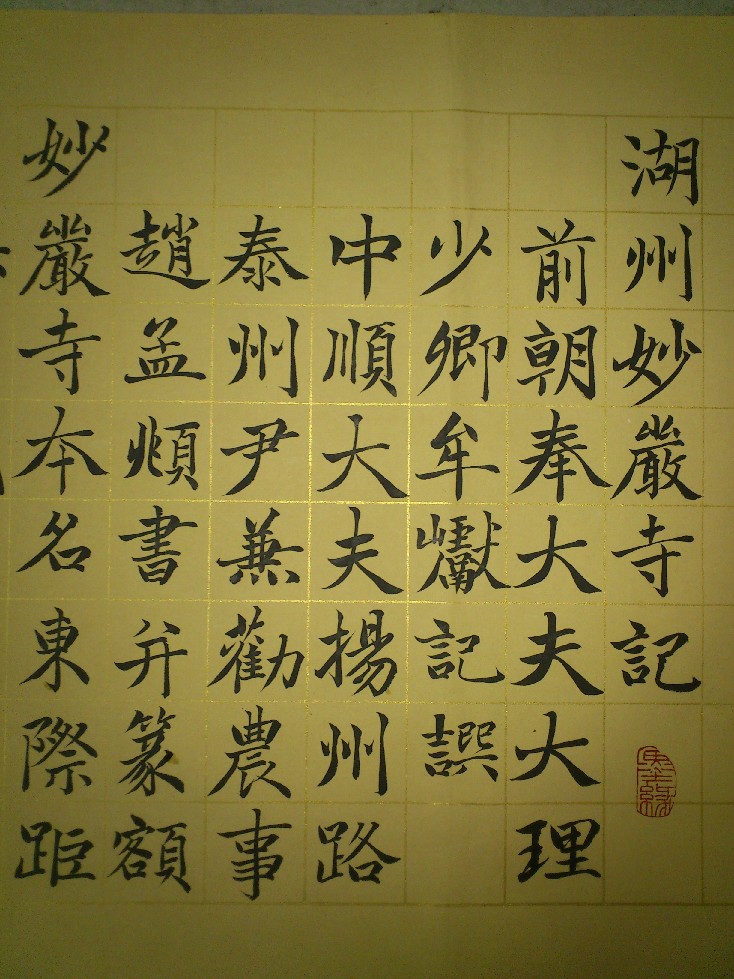 湖州妙嚴寺記
前朝奉大夫大理
少卿牟巘記譔
中順大夫揚州路
泰州尹兼勸農事
趙孟頫書并篆額
妙嚴寺本名東際距